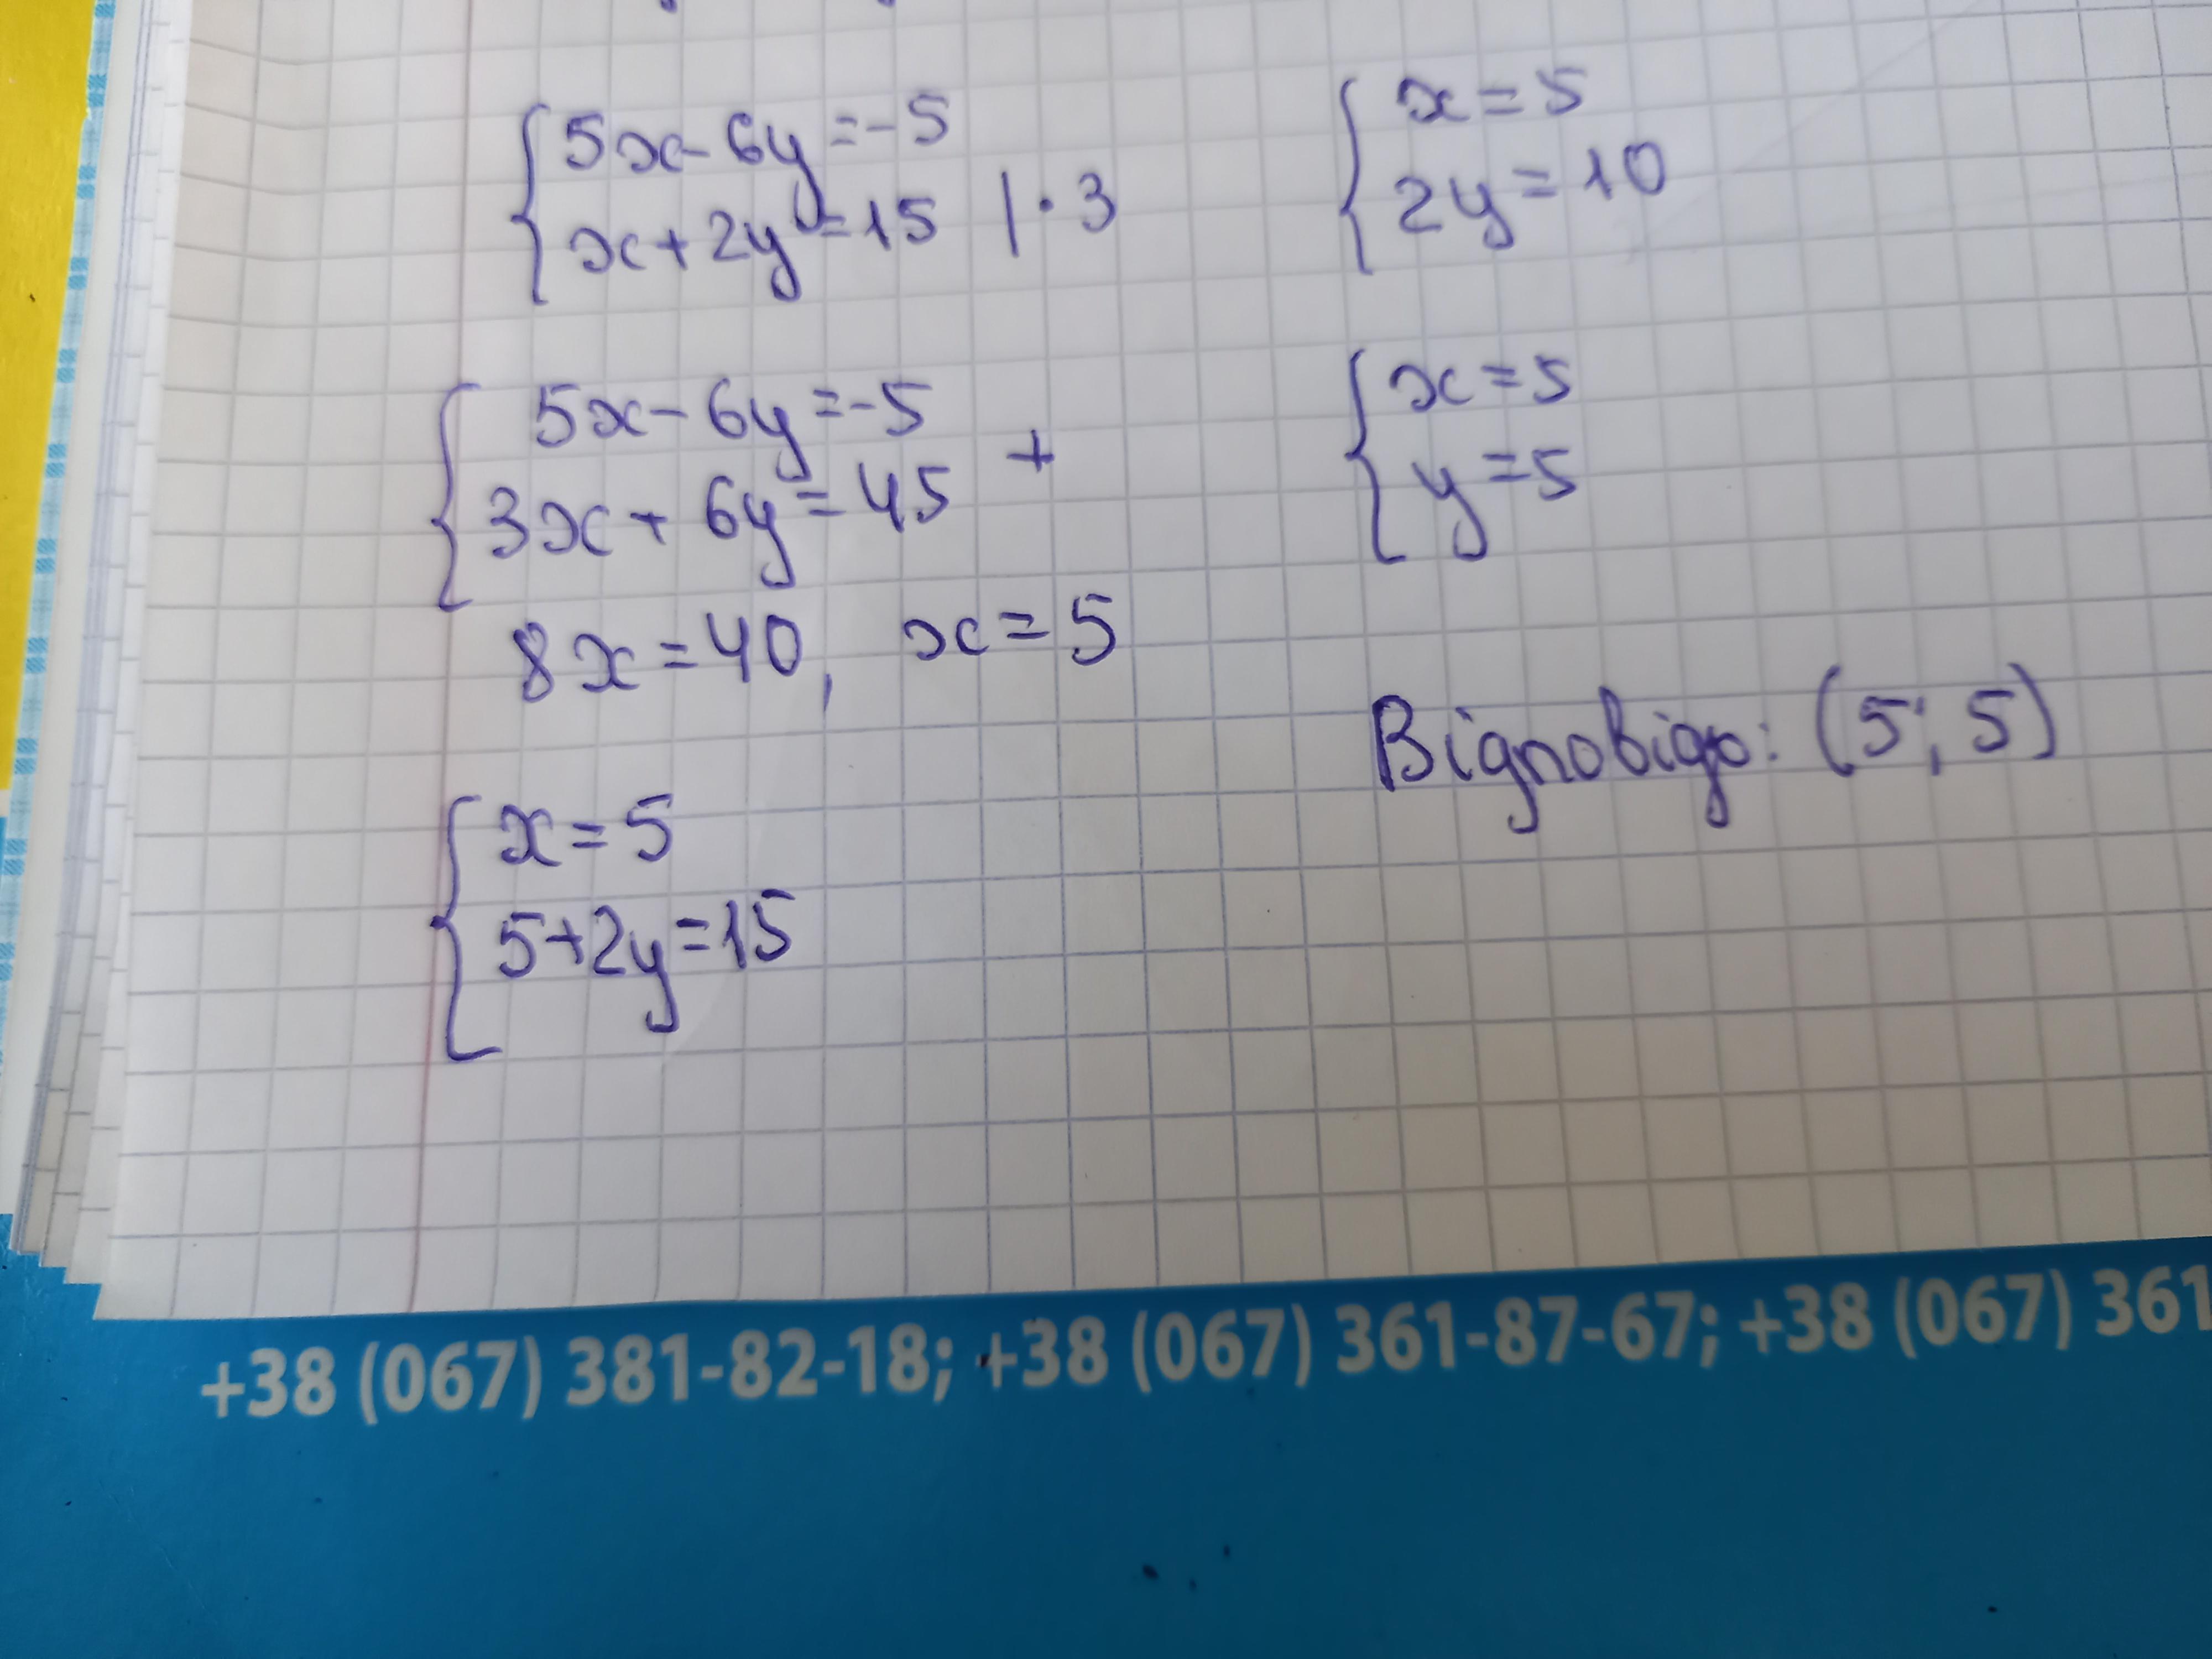 5x - 6y = -5
x + 2y = 15 | · 3
5x - 6y = -5
+
3x + 6y = 45
8x = 40, x = 5
x = 5
5 + 2y = 15
x = 5
2y = 10
x = 5
y = 5
Відповідь: (5; 5)
+38 (067) 381-82-18; +38 (067) 361-87-67; +38 (067) 361